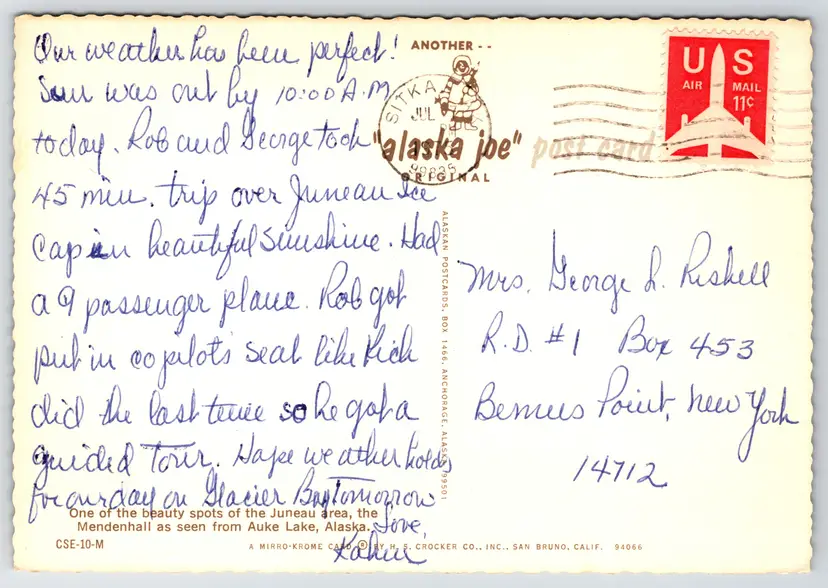 Our weather has been perfect!
Sun was out by 10:00 A.M.
today. Rob and George took
45 min. trip over Juneau Ice
Cap in beautiful sunshine. Had
a 9 passenger plane. Rob got
put in copilot's seat like Rich
did the last time so he got a
guided tour. Hope weather holds
for our day on Glacier Bay Tomorrow
Love,
One of the beauty spots of the Juneau area, the
Mendenhall as seen from Auke Lake, Alaska.
CSE-10-M
A MIRRO-KROME CARD ® BY H. S. CROCKER CO., INC., SAN BRUNO, CALIF. 94066
ALASKAN POSTCARDS, BOX 1466, ANCHORAGE, ALASKA 99501
ANOTHER --
"alaska joe" post card
ORIGINAL
SITKA
JUL
99835
US
AIR MAIL
11¢
Mrs. George L. Riskell
R.D. #1 Box 453
Bemus Point, New York
14712